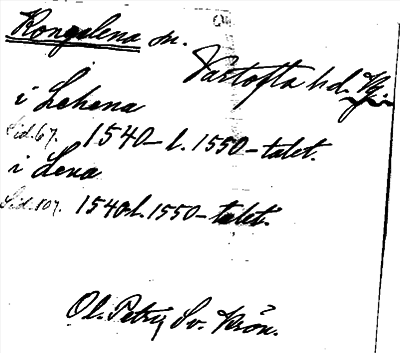 Kongslena sn.
Vartofta hd. Vg.
i Lehena
Sid. 67. 1540- l. 1550-talet.
i Lena
Sid. 107. 1540-l. 1550-talet.
Ol. Petri, Sv. Krön.